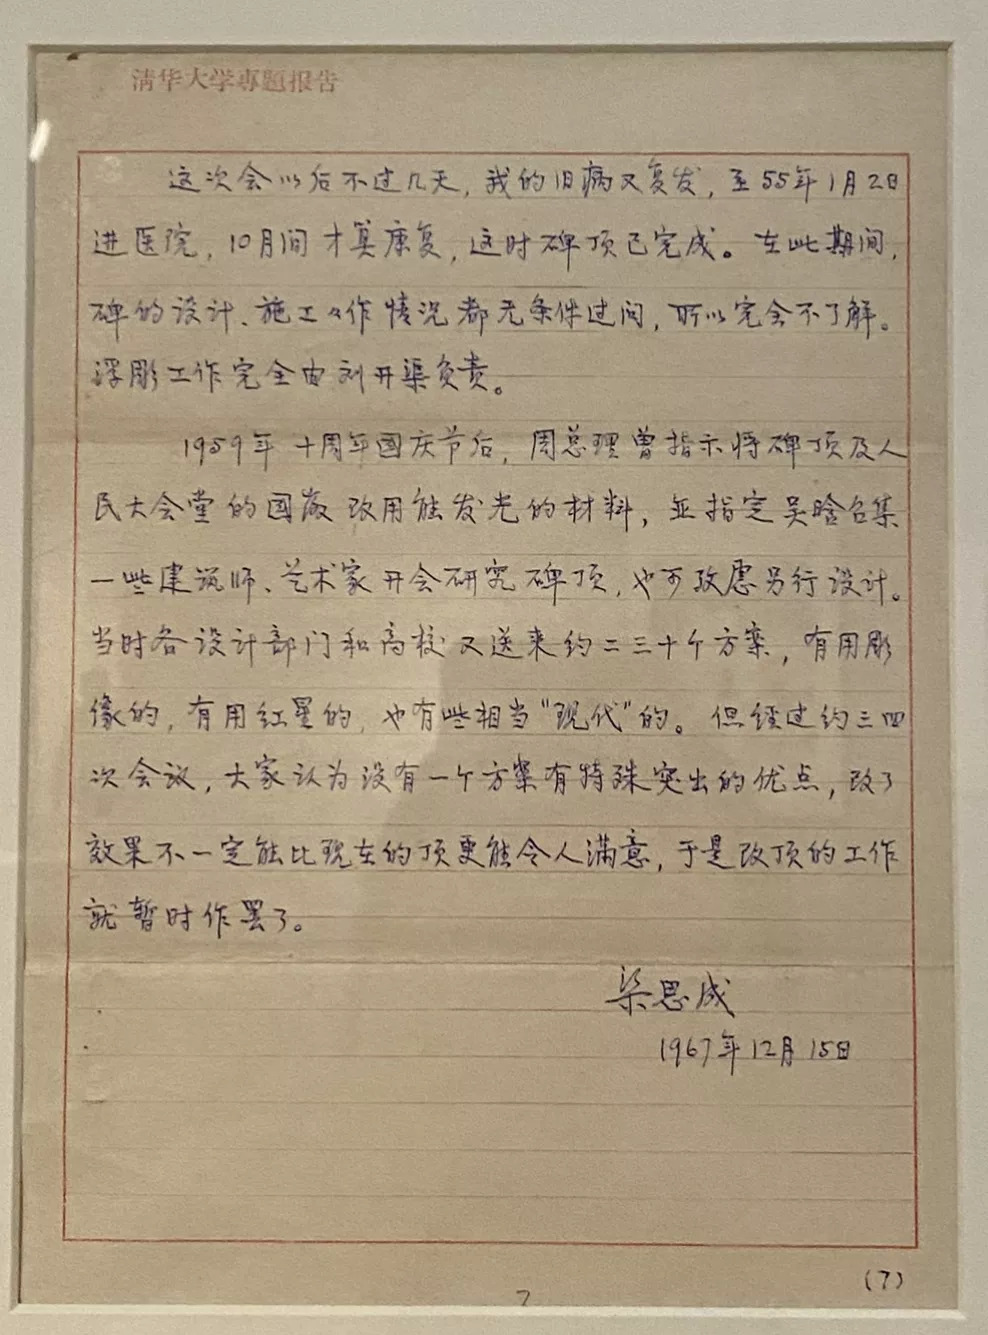 清华大学専題报告
这次会以后不过几天，我的旧病又复发，至55年1月2日
进医院，10月间才算康复，这时碑顶已完成。在此期间，
碑的设计、施工々作情况都无条件过问，所以完全不了解。
浮彫工作完全由刘开渠负责。
1959年十周年国庆节后，周总理曾指示将碑顶及人
民大会堂的国徽改用能发光的材料，並指定吴晗召集
一些建筑师、艺术家开会研究碑顶，也可攷虑另行设计。
当时各设计部门和高校又送来约二三十个方案，有用彫
像的，有用红星的，也有些相当“现代”的。但经过约三四
次会议，大家认为没有一个方案有特殊突出的优点，改了
效果不一定能比现在的顶更能令人满意，于是改顶的工作
就暂时作罢了。
梁思成
1967年12月15日
(7)
7